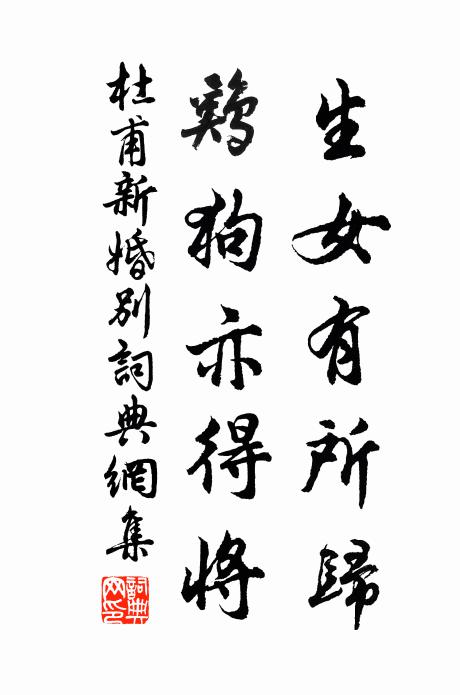 生女有所歸
鷄狗亦得將
杜甫新婚別詞典網集
詞典
网印